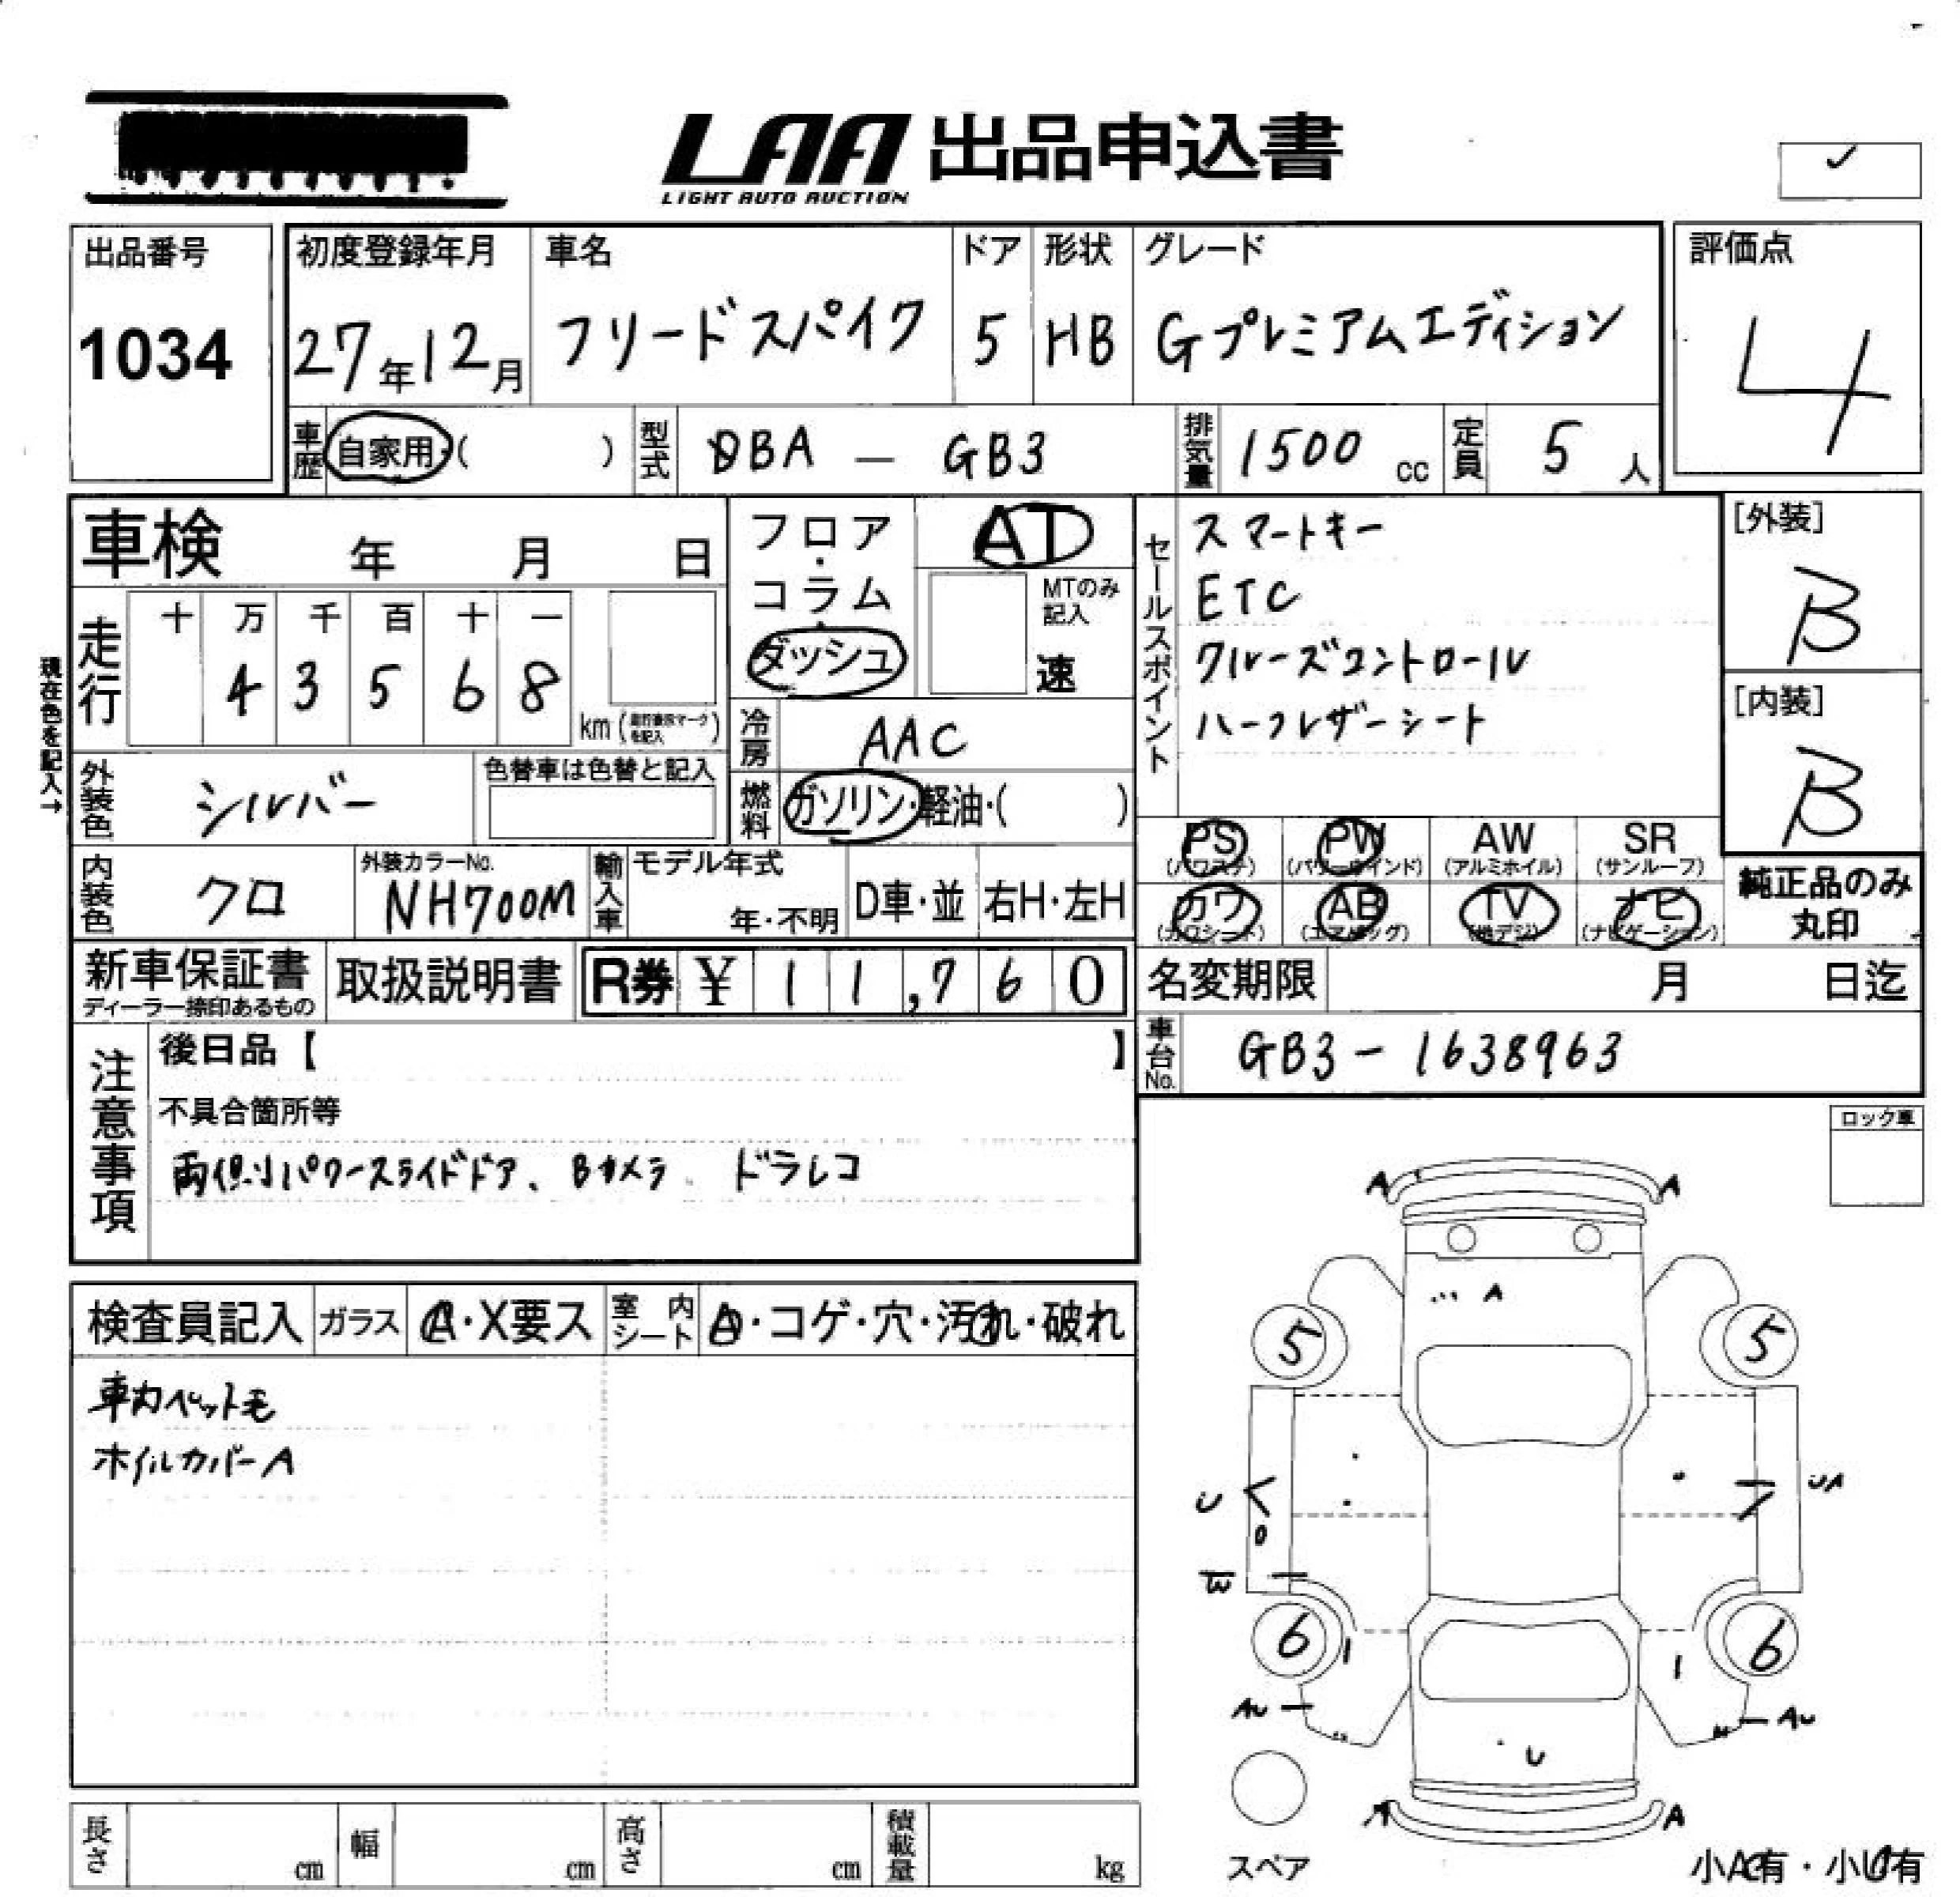 LAA 出品申込書
LIGHT AUTO AUCTION
出品番号
1034
初度登録年月
27年12月
車名
フリードスパイク
ドア
5
形状
HB
グレード
Gプレミアムエディション
評価点
4
車歴 自家用・( )
型式 DBA - GB3
排気量 1500 cc
定員 5 人
車検 年 月 日
フロア・コラム・ダッシュ
AT
MTのみ記入
速
セールスポイント
スマートキー
ETC
クルーズコントロール
ハーフレザーシート
[外装]
B
[内装]
B
現在色を記入→
走行
十 万 千 百 十 一
4 3 5 6 8
km
冷房 AAC
外装色 シルバー
色替車は色替と記入
燃料 ガソリン・軽油・( )
PS (パワステ)
PW (パワーウインド)
AW (アルミホイル)
SR (サンルーフ)
カワ (カワシート)
AB (エアバッグ)
TV (地デジ)
ナビ (ナビゲーション)
純正品のみ
丸印
内装色 クロ
外装カラーNo.
NH700M
輸入車
モデル年式
年・不明
D車・並
右H・左H
新車保証書
ディーラー捺印あるもの
取扱説明書
R券 ¥ 11,760
名変期限 月 日迄
車台No. GB3-1638963
注意事項
後日品【 】
不具合箇所等
両側パワースライドドア、Bカメラ、ドラレコ
ロック車
検査員記入
ガラス
A・X要ス
室内シート
A・コゲ・穴・汚れ・破れ
車カペット毛
ホイルカバーA
A A
A
5 5
U
UA
W
6 6
AU
AU
U
A A
スペア
小A有・小U有
長さ cm
幅 cm
高さ cm
積載量 kg